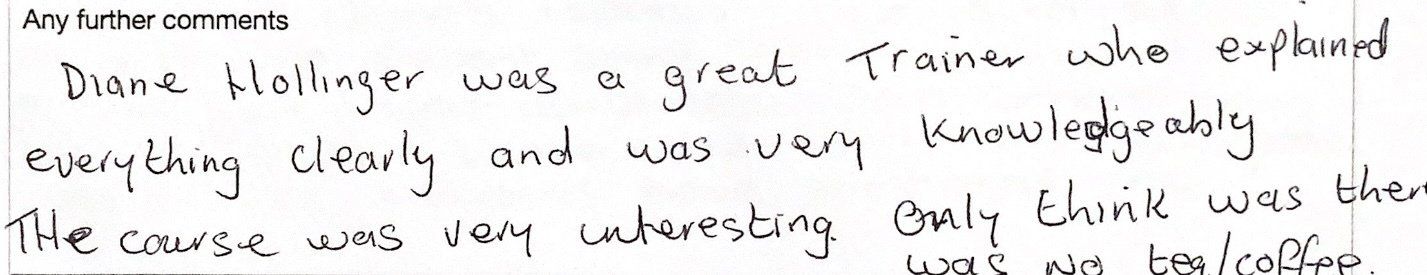 Any further comments
Diane Hollinger was a great Trainer who explained
everything clearly and was very knowledgeably
THe course was very interesting. Only think was ther
was No tea/coffee.